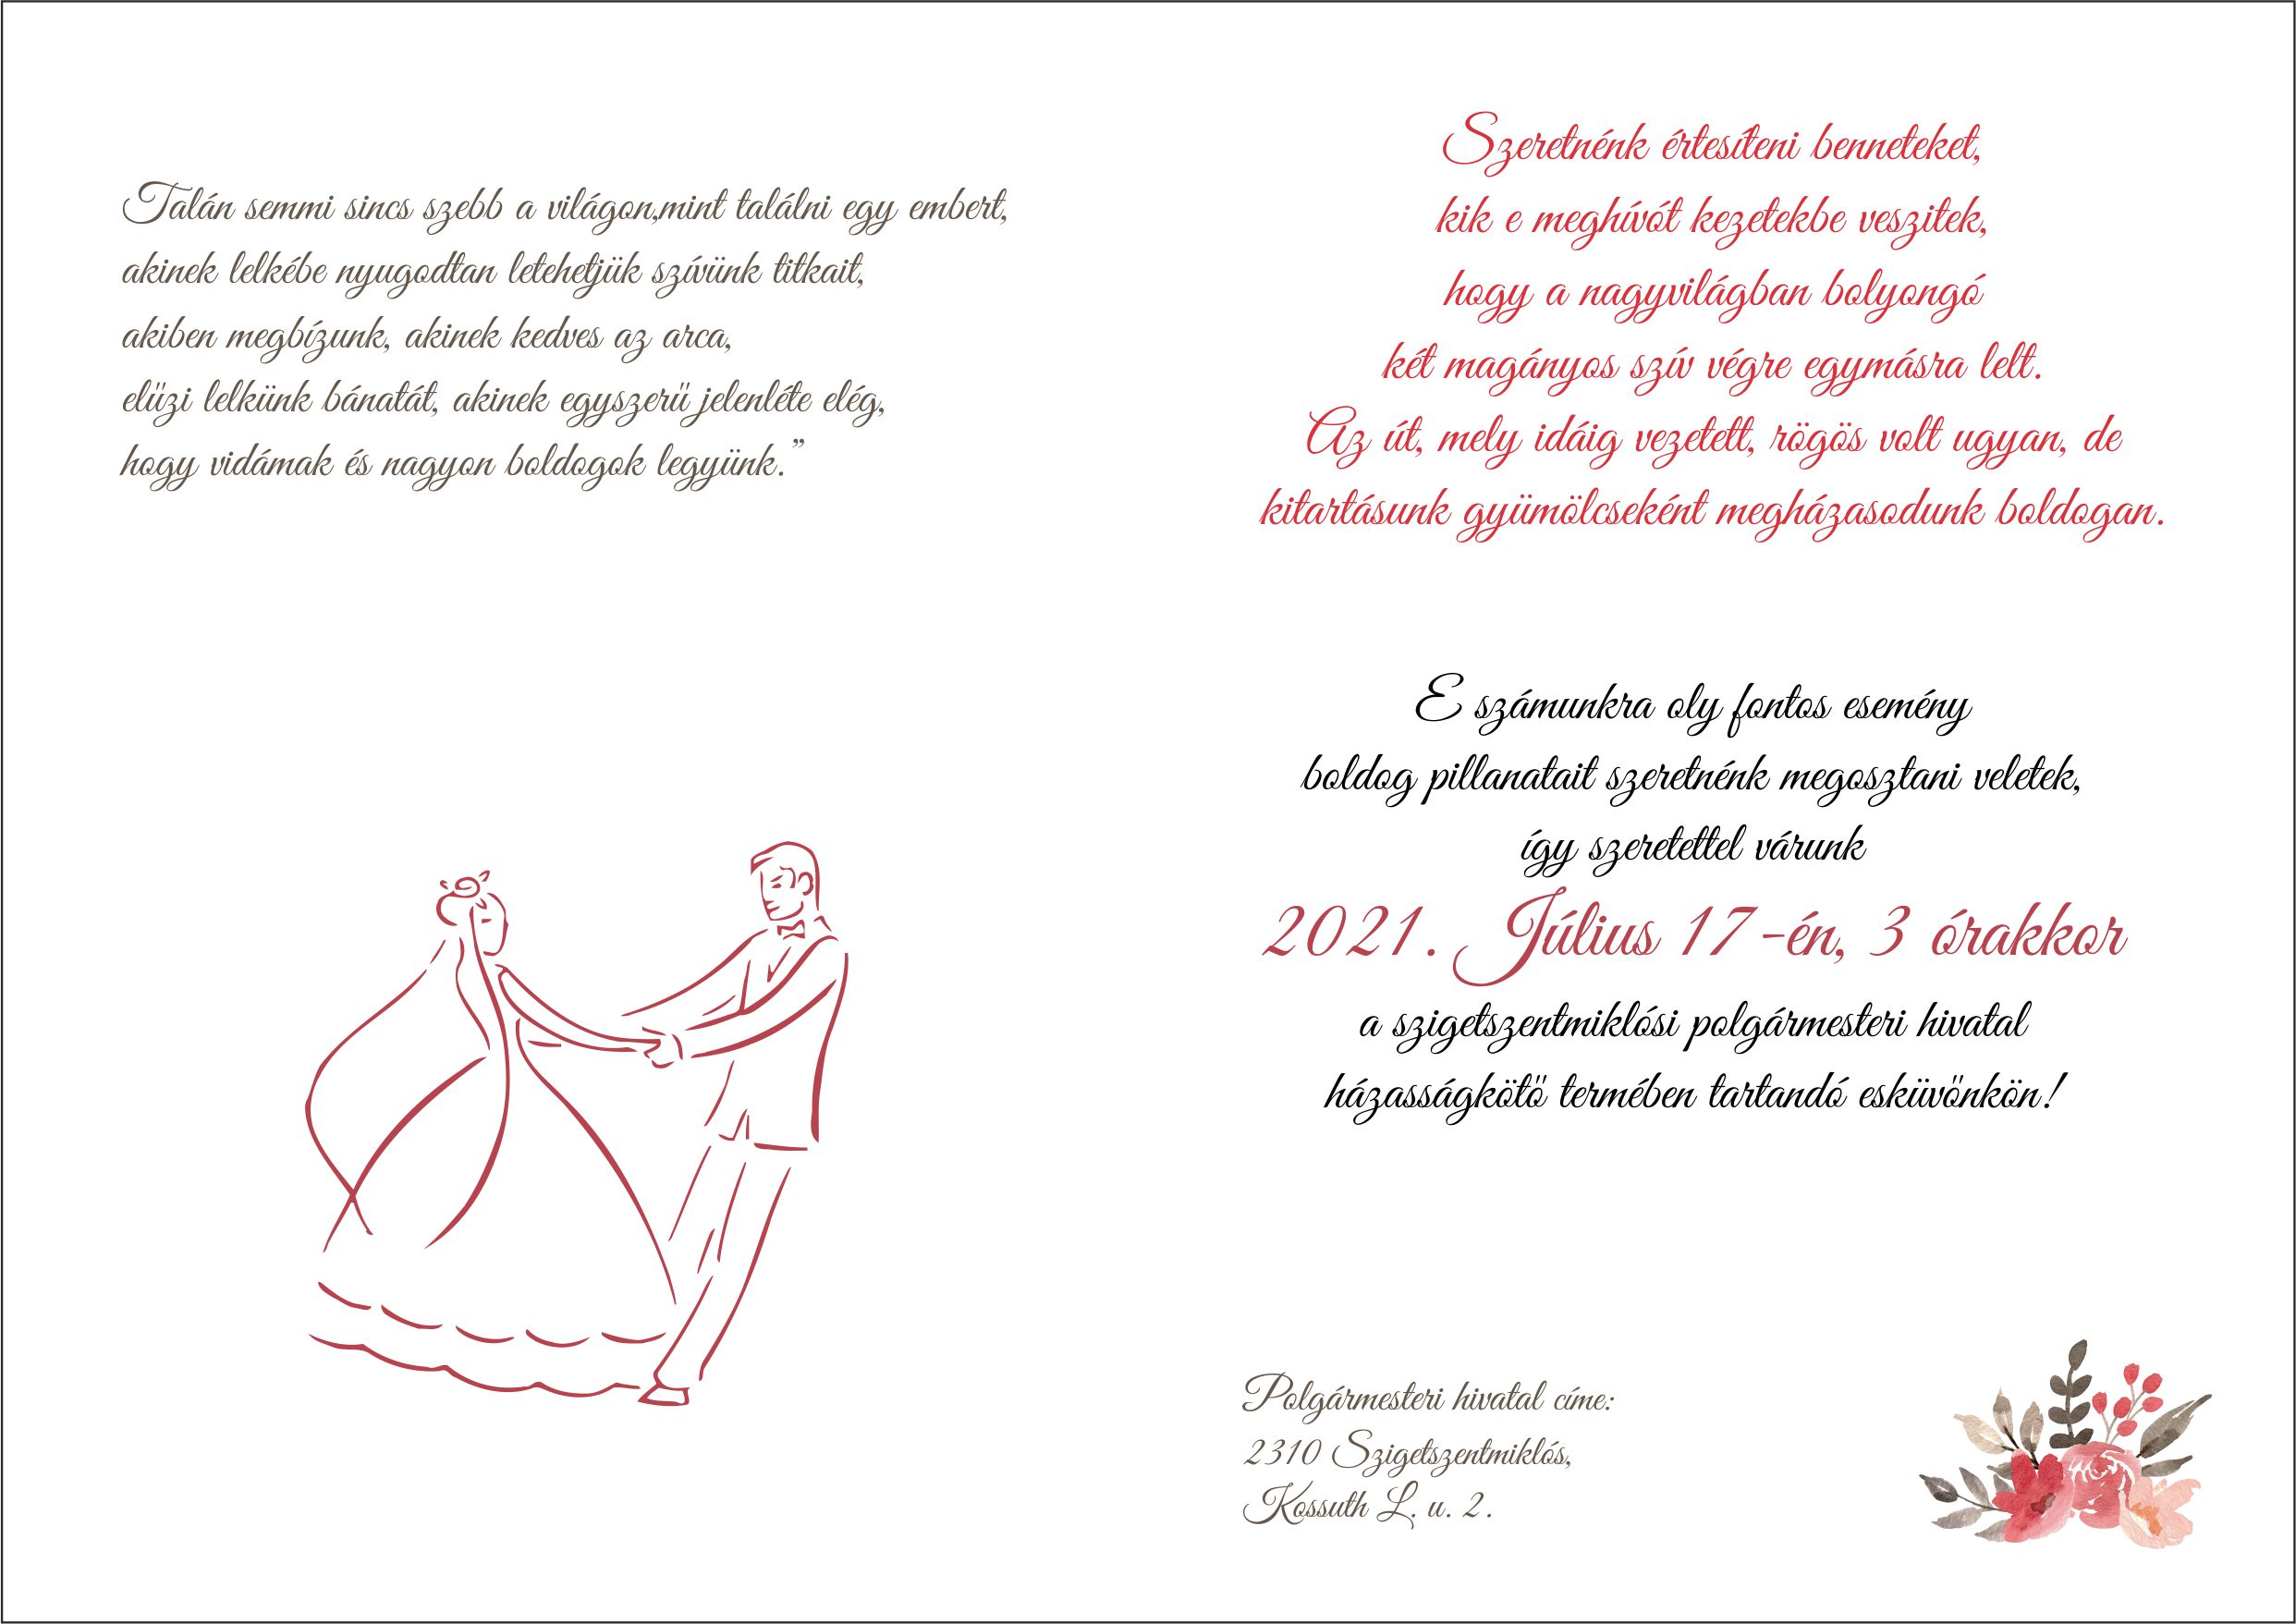 Talán semmi sincs szebb a világon,mint találni egy embert,
akinek lelkébe nyugodtan letehetjük szívünk titkait,
akiben megbízunk, akinek kedves az arca,
elűzi lelkünk bánatát, akinek egyszerű jelenléte elég,
hogy vidámak és nagyon boldogok legyünk.”
Szeretnénk értesíteni benneteket,
kik e meghívót kezetekbe veszitek,
hogy a nagyvilágban bolyongó
két magányos szív végre egymásra lelt.
Az út, mely idáig vezetett, rögös volt ugyan, de
kitartásunk gyümölcseként megházasodunk boldogan.
E számunkra oly fontos esemény
boldog pillanatait szeretnénk megosztani veletek,
így szeretettel várunk
2021. Július 17-én, 3 órakkor
a szigetszentmiklósi polgármesteri hivatal
házasságkötő termében tartandó esküvőnkön!
Polgármesteri hivatal címe:
2310 Szigetszentmiklós,
Kossuth L. u. 2.